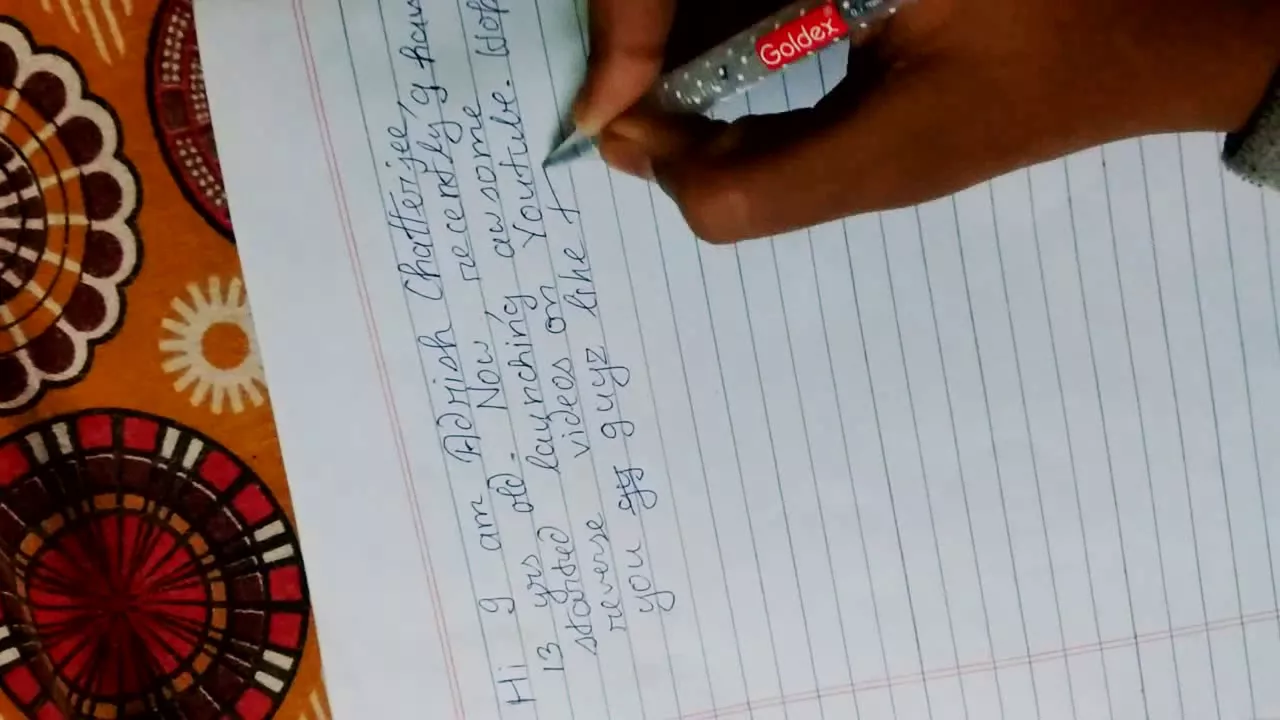 Hi I am Adrish Chatterjee,
13 yrs old. Now, recently I have
started launching awsome
reverse videos on Youtube. Hop
you gy guyz like t
Goldex